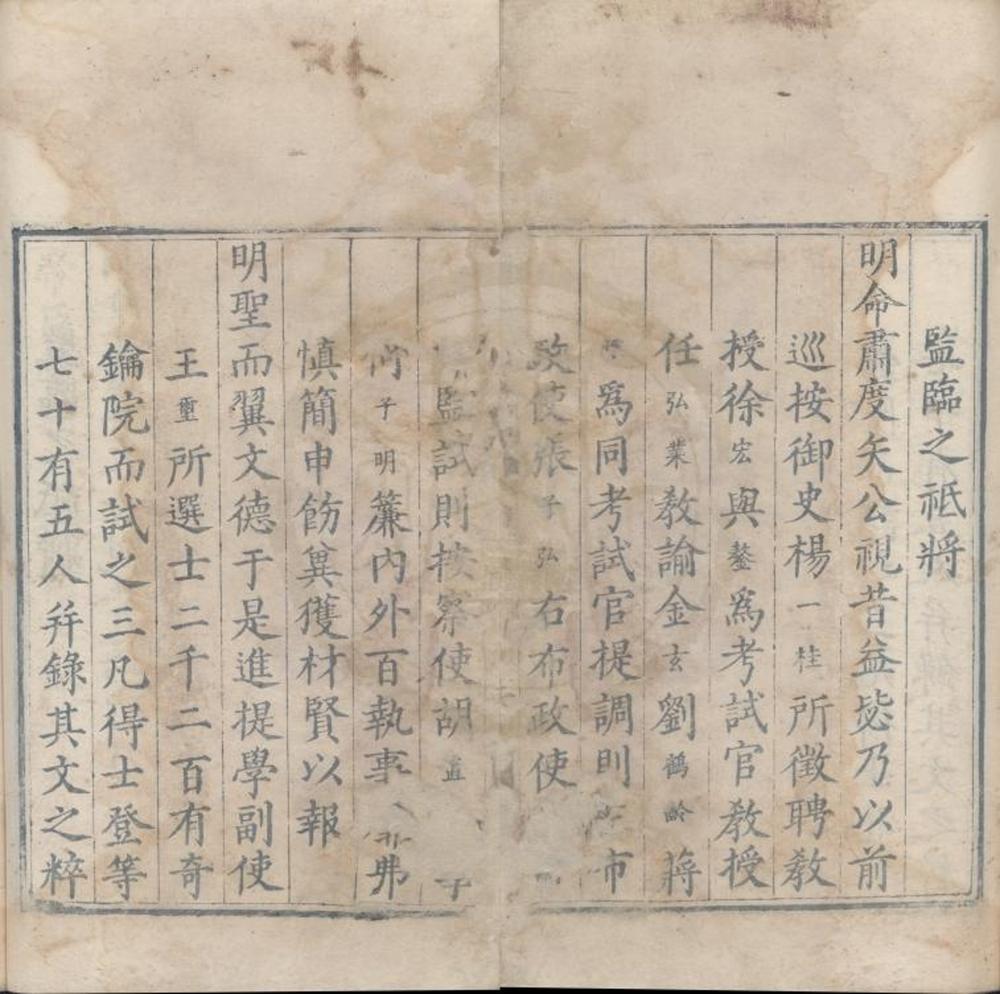 監臨之祗將
明命肅度矢公視昔益毖乃以前
巡按御史楊一桂所徵聘敎
授徐宏與鏊爲考試官敎授
任弘業敎諭金玄劉鶴齡蔣
爲同考試官提調則 布
政使張子弘右布政使
監試則按察使胡
子明簾内外百執事 弗
慎簡申飭冀獲材賢以報
明聖而翼文德于是進提學副使
王璽所選士二千二百有奇
鑰院而試之三凡得士登等
七十有五人并錄其文之粹